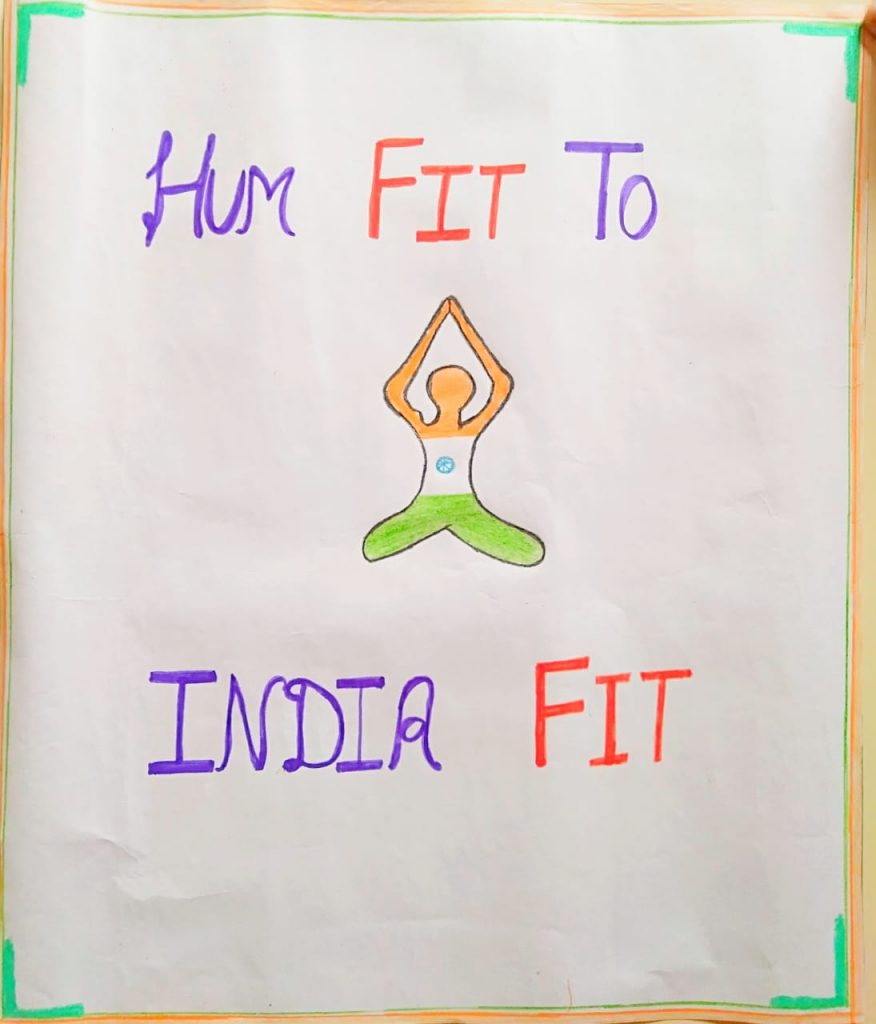 HUM FIT TO
INDIA FIT